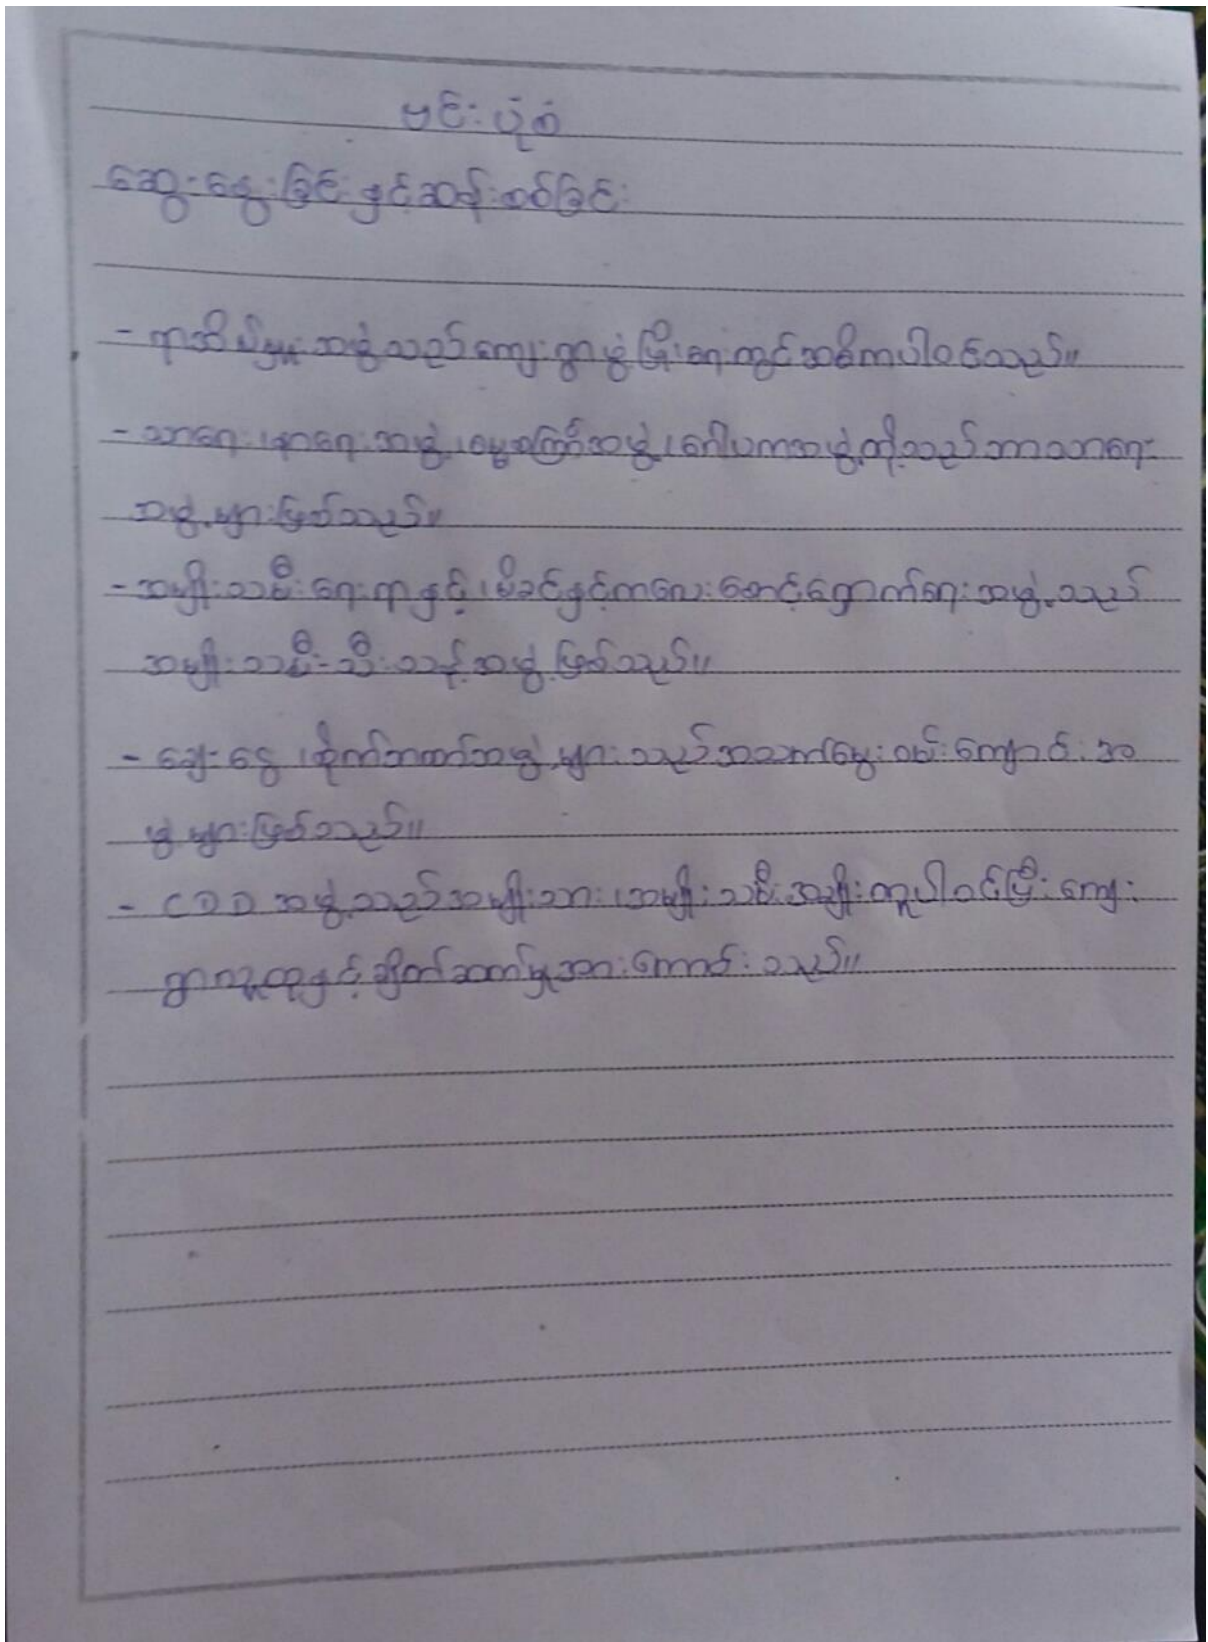 မင်းပုံစံ
ဆွေးနွေးခြင်းနှင့်ဆန်းစစ်ခြင်း
- ရာအိမ်မှူးအဖွဲ့သည်ကျေးရွာဖွံ့ဖြိုးရေးတွင်အဓိကပါဝင်သည်။
- သာရေး၊နာရေးအဖွဲ့၊ဓမ္မစကြာအဖွဲ့၊ဂေါပကအဖွဲ့တို့သည်ဘာသာရေး
အဖွဲ့များဖြစ်သည်။
- အမျိုးသမီးရေးရာနှင့်၊မိခင်နှင့်ကလေးစောင့်ရှောက်ရေးအဖွဲ့သည်
အမျိုးသမီးသီးသန့်အဖွဲ့ဖြစ်သည်။
- ချေးငွေ၊စိုက်ဘဏ်အဖွဲ့များသည်အသက်မွေးဝမ်းကျောင်းအ
ဖွဲ့များဖြစ်သည်။
- CDD အဖွဲ့သည်အမျိုးသား၊အမျိုးသမီးအချိုးတူပါဝင်ပြီးကျေး
ရွာလူထုနှင့်ချိတ်ဆက်မှုအားကောင်းသည်။